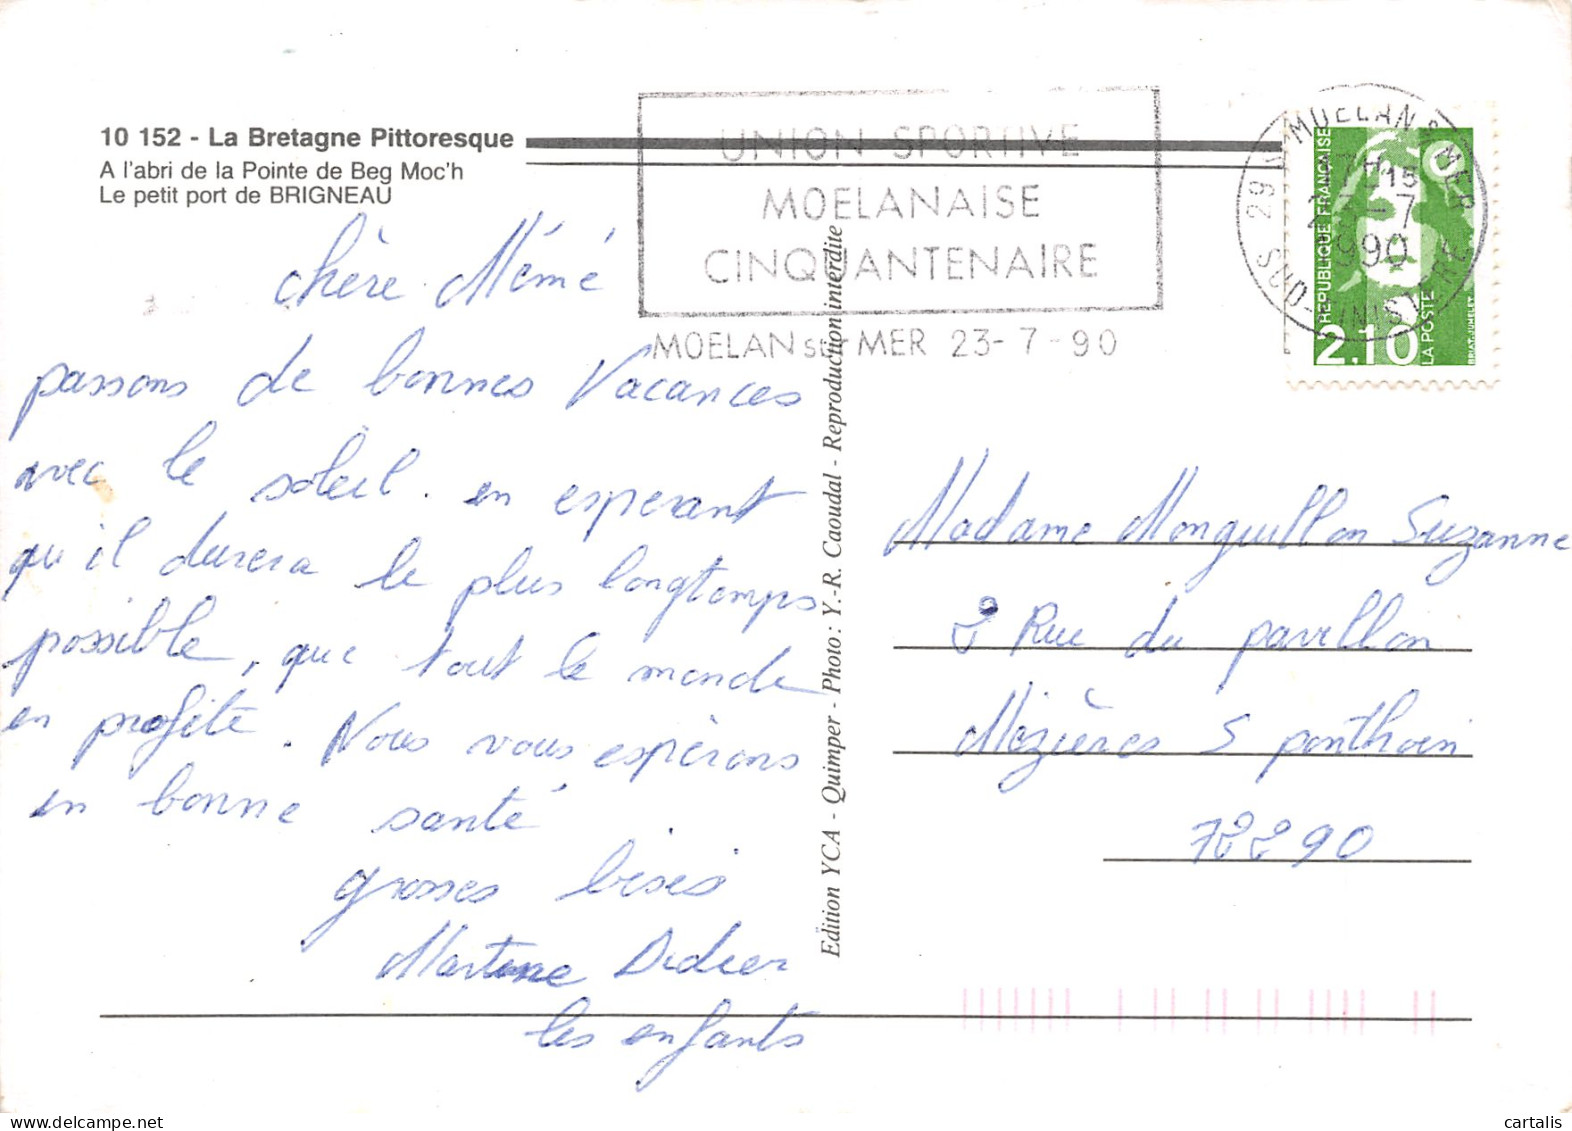 10 152 - La Bretagne Pittoresque
A l'abri de la Pointe de Beg Moc'h
Le petit port de BRIGNEAU
UNION SPORTIVE
MOELANAISE
CINQUANTENAIRE
MOELAN sur MER 23-7-90
29 MOELAN S MER
15
23-7
1990
SUD-FINISTERE
REPUBLIQUE FRANÇAISE
2.10
LA POSTE
BRIAT-JUMELET
chère Mémé
passons de bonnes Vacances
avec le soleil. en esperant
qu'il durera le plus longtemps
possible, que tout le monde
en profite. Nous vous espérons
en bonne santé
grosses bises
Martine Didier
les enfants
Edition YCA - Quimper - Photo : Y.-R. Caoudal - Reproduction interdite
Madame Monguillon Suzanne
2 Rue du pavillon
Mézières S ponthoin
72290
cartalis